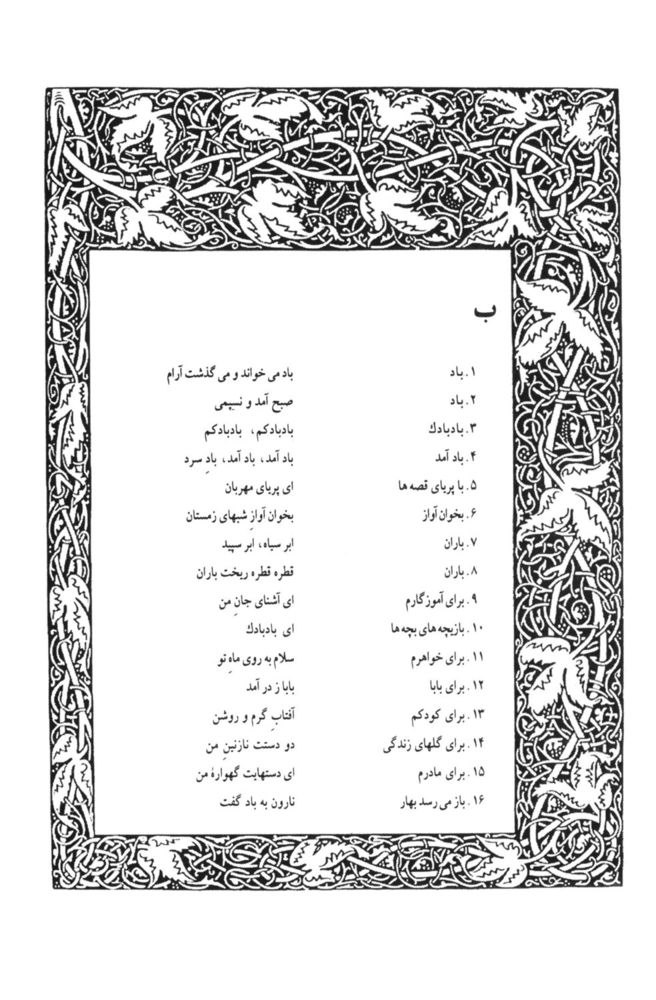 ب
۱. باد باد می خواند و می گذشت آرام
۲. باد صبح آمد و نسیمی
۳. بادبادك بادبادکم، بادبادکم
۴. باد آمد باد آمد، باد آمد، بادِ سرد
۵. با پریای قصه ها ای پریای مهربان
۶. بخوان آواز بخوان آوازِ شبهای زمستان
۷. باران ابر سیاه، ابر سپید
۸. باران قطره قطره ریخت باران
۹. برای آموزگارم ای آشنای جانِ من
۱۰. بازیچه های بچه ها ای بادبادك
۱۱. برای خواهرم سلام به روی ماهِ تو
۱۲. برای بابا بابا ز در آمد
۱۳. برای کودکم آفتابِ گرم و روشن
۱۴. برای گلهای زندگی دو دستت نازنینِ من
۱۵. برای مادرم ای دستهایت گهوارۀ من
۱۶. باز می رسد بهار نارون به باد گفت